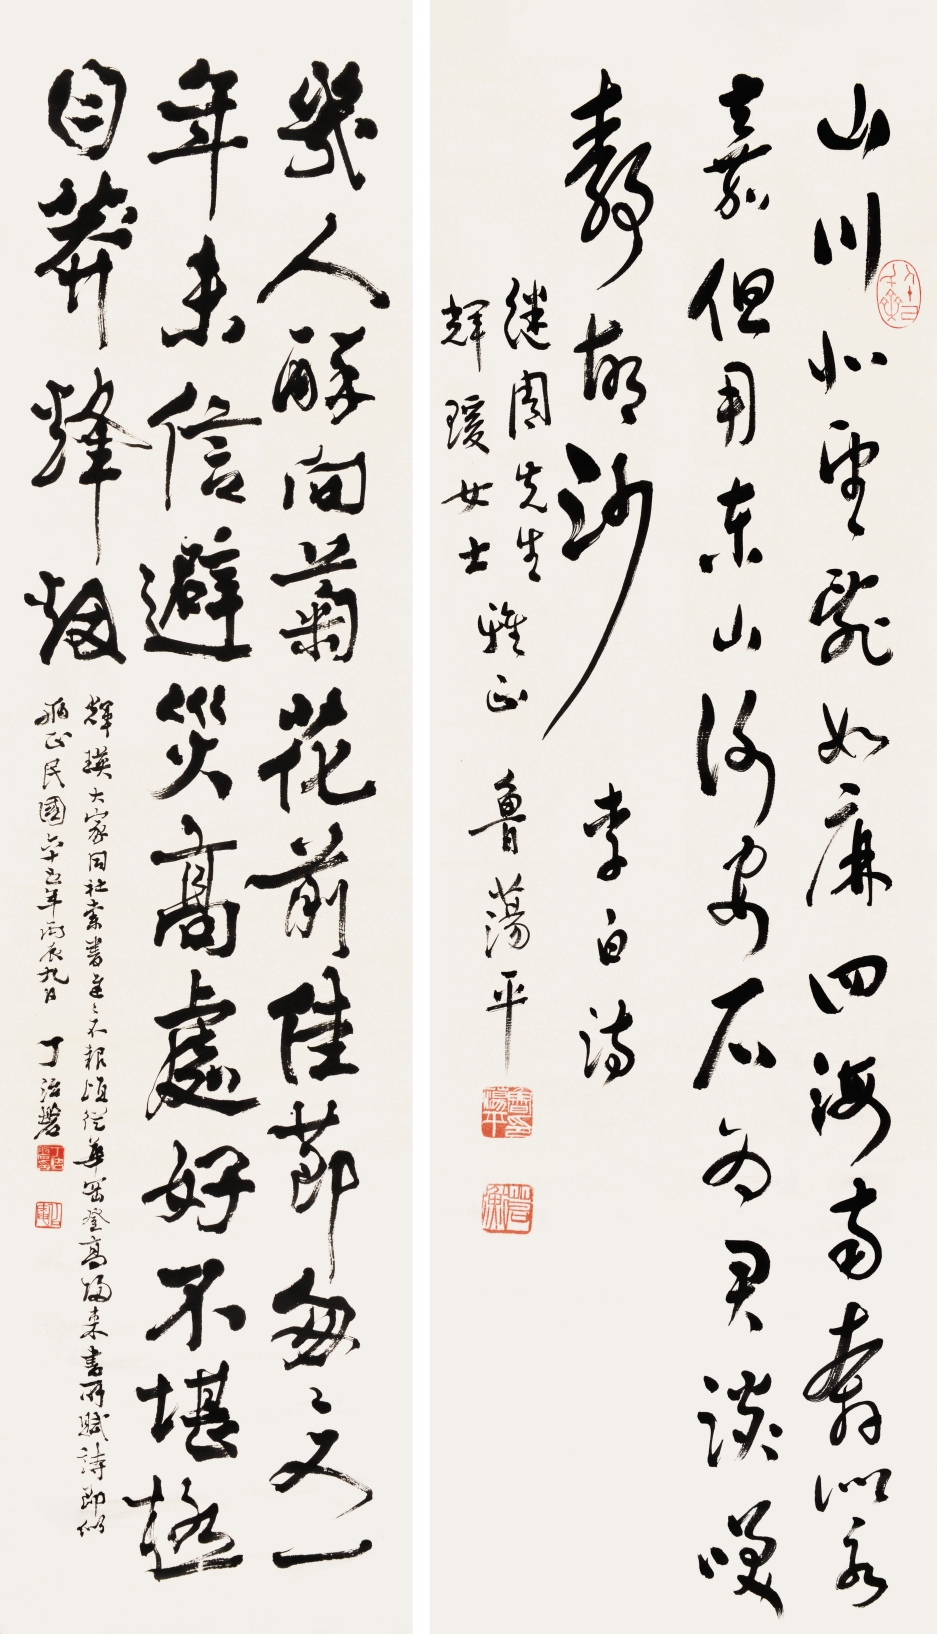 山川北望亂如麻四海南奔似永
嘉但用東山謝安石為君談笑
靜胡沙
李白詩
繼周先生
輝瑗女士雅正
魯蕩平
幾人醉向菊花前佳節匆匆又一
年未信避災高處好不堪極
目莽烽煙
輝瑛大家同社索書遲遲不報頃從華岡登高歸來書所賦詩即似
雅正民國六十五年丙辰九日
丁治磐